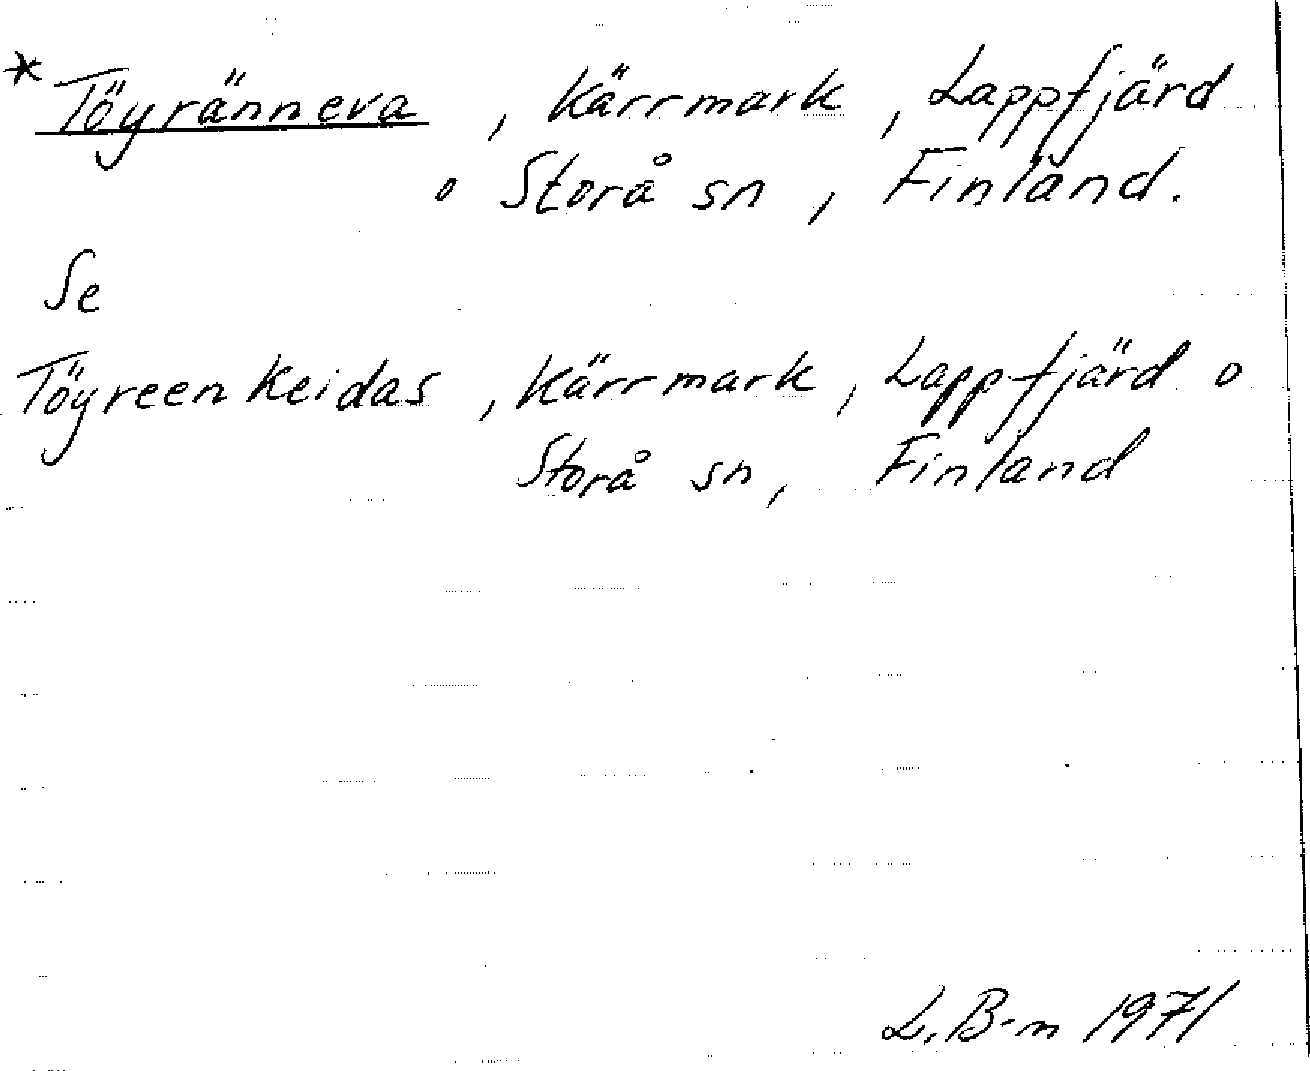 * Töyränneva, Kärrmark, Lappfjärd
o Storå sn, Finland.
Se
Töyreenkeidas, Kärrmark, Lappfjärd o
Storå sn, Finland
L. B-m 1971